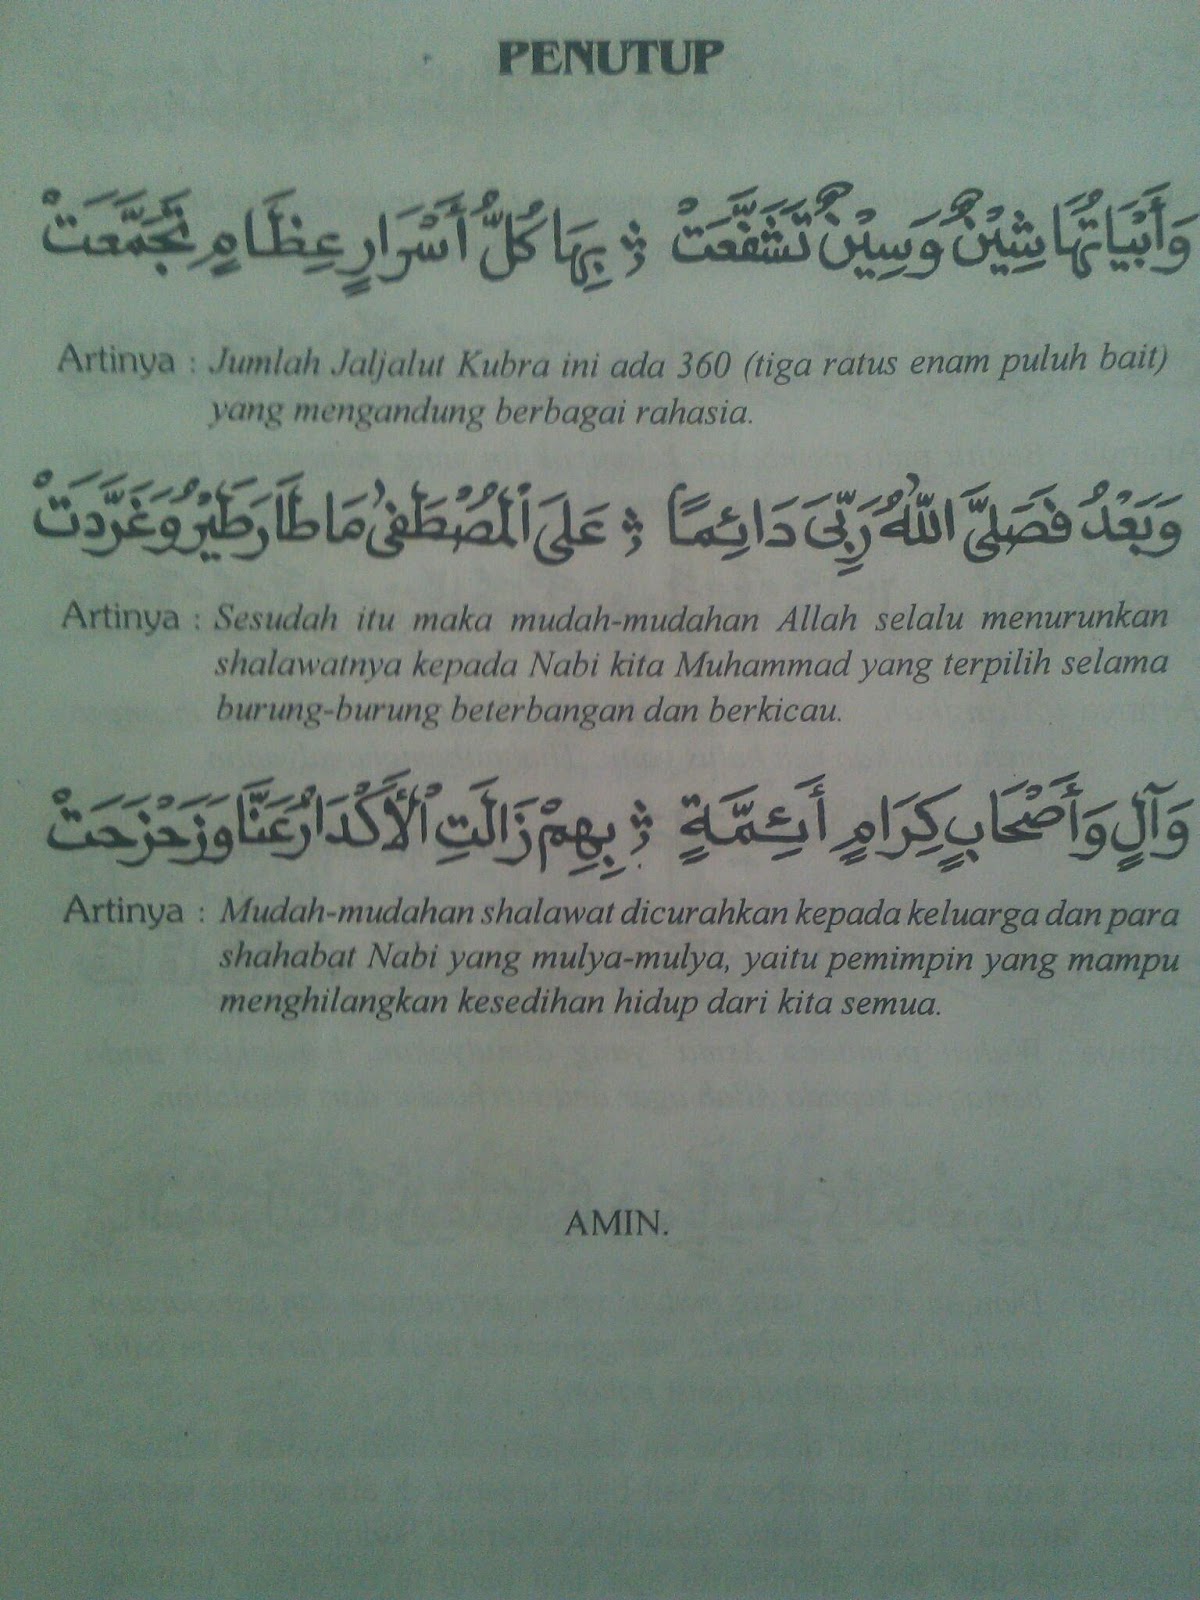 PENUTUP
وَأَبْيَاتُهَا شِيْنٌ وَسِيْنٌ تَشَفَّعَتْ ؛ بِهَا كُلُّ أَسْرَارٍ عِظَامٍ تَجَمَّعَتْ
Artinya : Jumlah Jaljalut Kubra ini ada 360 (tiga ratus enam puluh bait)
yang mengandung berbagai rahasia.
وَبَعْدُ فَصَلَّى اللهُ رَبِّيَ دَائِمًا ؛ عَلَى الْمُصْطَفٰى مَا طَارَ طَيْرٌ وَغَرَّدَتْ
Artinya : Sesudah itu maka mudah-mudahan Allah selalu menurunkan
shalawatnya kepada Nabi kita Muhammad yang terpilih selama
burung-burung beterbangan dan berkicau.
وَآلٍ وَأَصْحَابٍ كِرَامٍ أَئِمَّةٍ ؛ بِهِمْ زَالَتِ الْأَكْدَارُ عَنَّا وَزَحْزَحَتْ
Artinya : Mudah-mudahan shalawat dicurahkan kepada keluarga dan para
shahabat Nabi yang mulya-mulya, yaitu pemimpin yang mampu
menghilangkan kesedihan hidup dari kita semua.
AMIN.